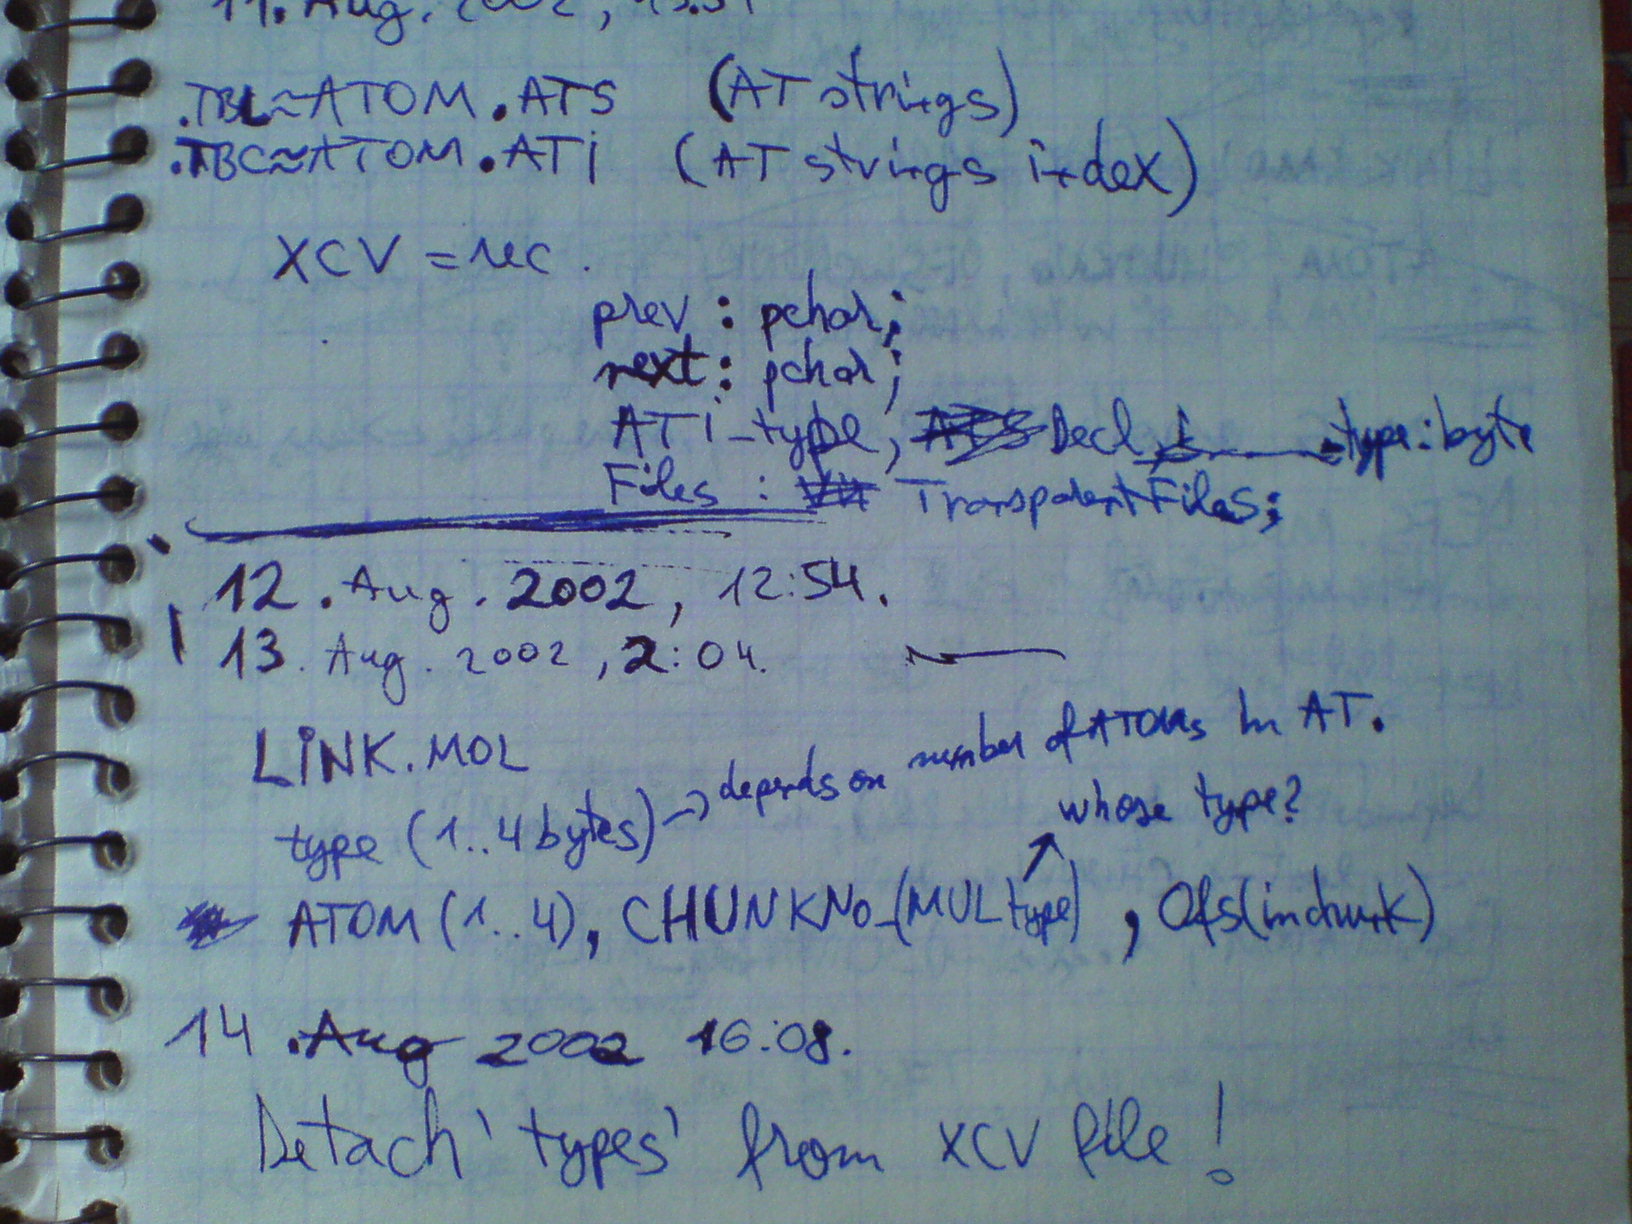 11. Aug. 2002,
.TBL≈ATOM.ATS (AT strings)
.TBC≈ATOM.ATi (AT strings index)
XCV = rec.
prev : pchar;
next : pchar;
ATi_type, Decl_type : byte
Files : TransparentFiles;
12. Aug. 2002, 12:54.
13. Aug. 2002, 2:04.
LiNK.MOL
type (1..4 bytes) → depends on number of ATOMs in AT.
whose type?
ATOM (1..4), CHUNKNo_(MULtype), Ofs(inchunk)
14. Aug 2002 16:08.
Detach 'types' from XCV file!